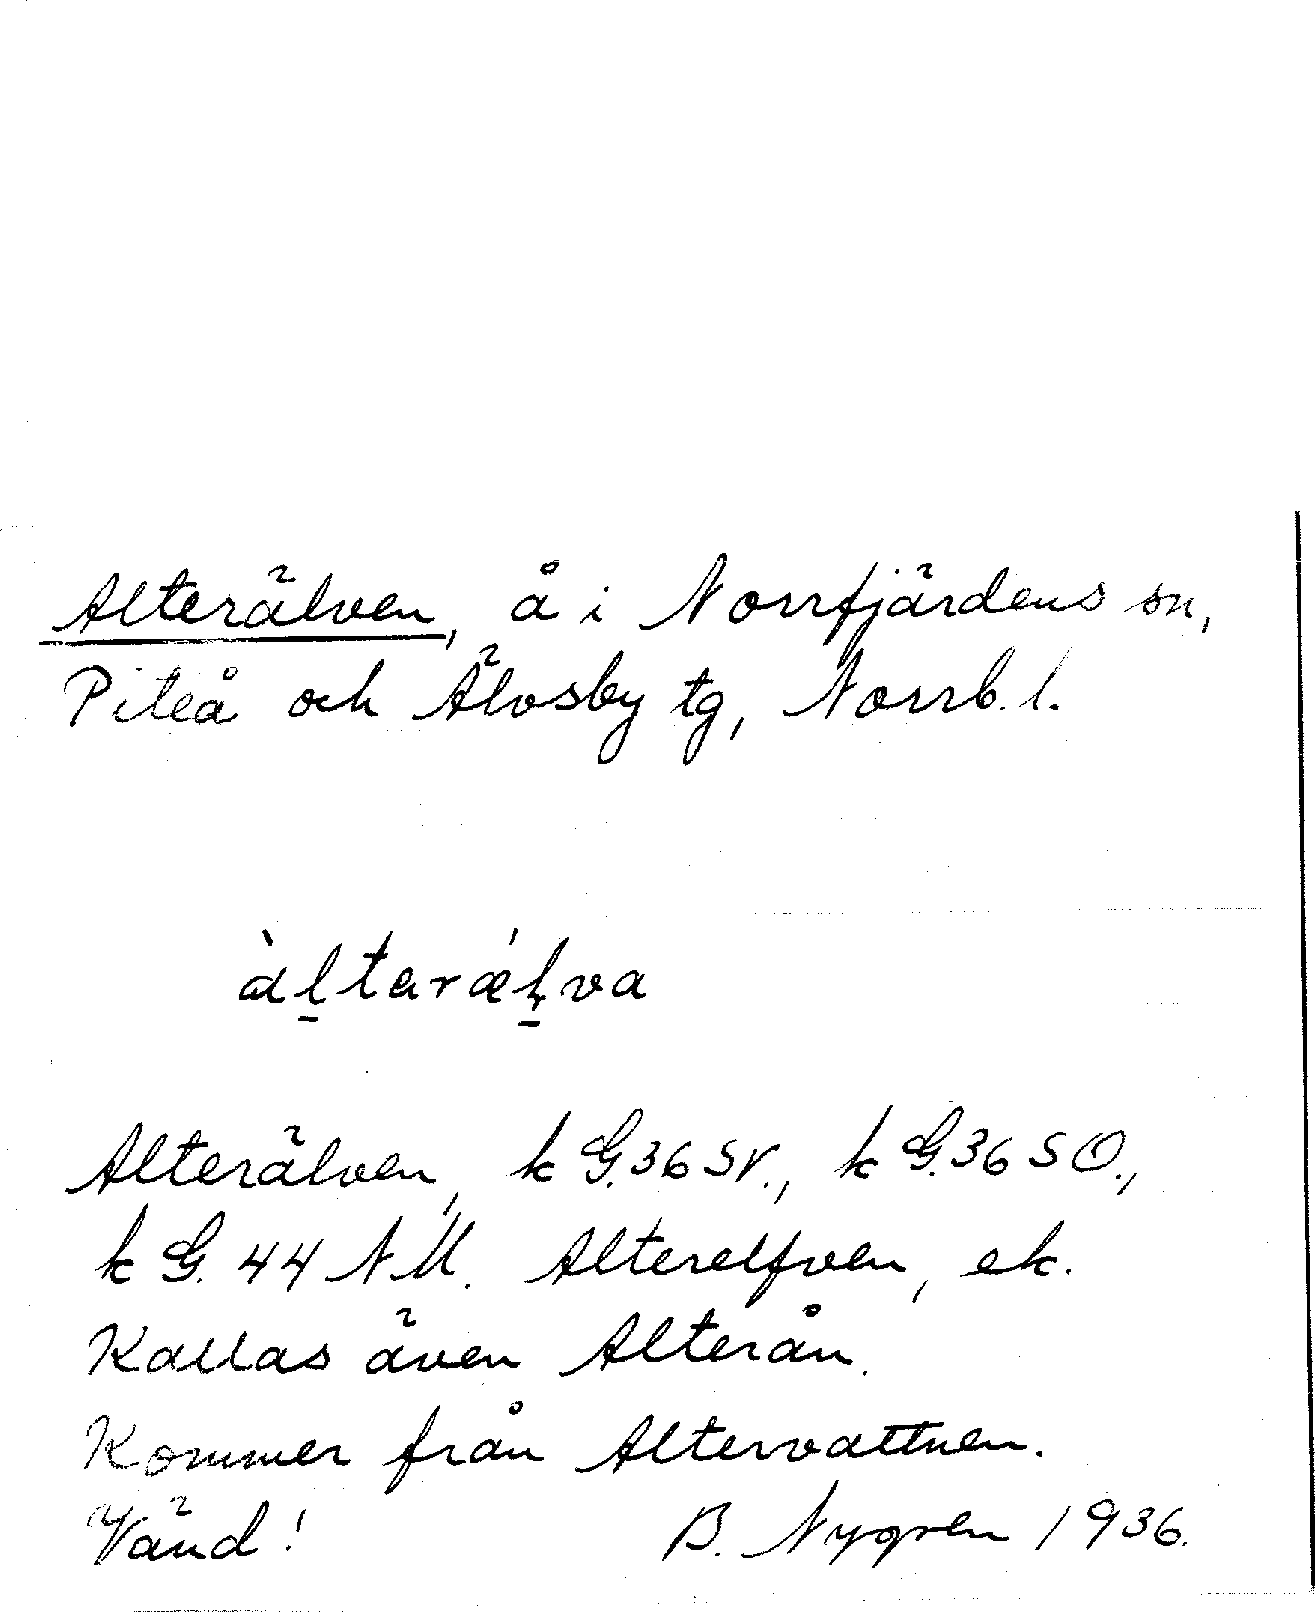 Alterälven, å i Norrfjärdens sn,
Piteå och Älvsby tg, Norrb. l.
àl̲tarǽl̲va
Alterälven, k G.36 SV., k G.36 SO.,
k G. 44 NV. Alterelfven, ek.
Kallas även Alterån.
Kommer från Altervattnen.
Vänd! B. Nygren 1936.